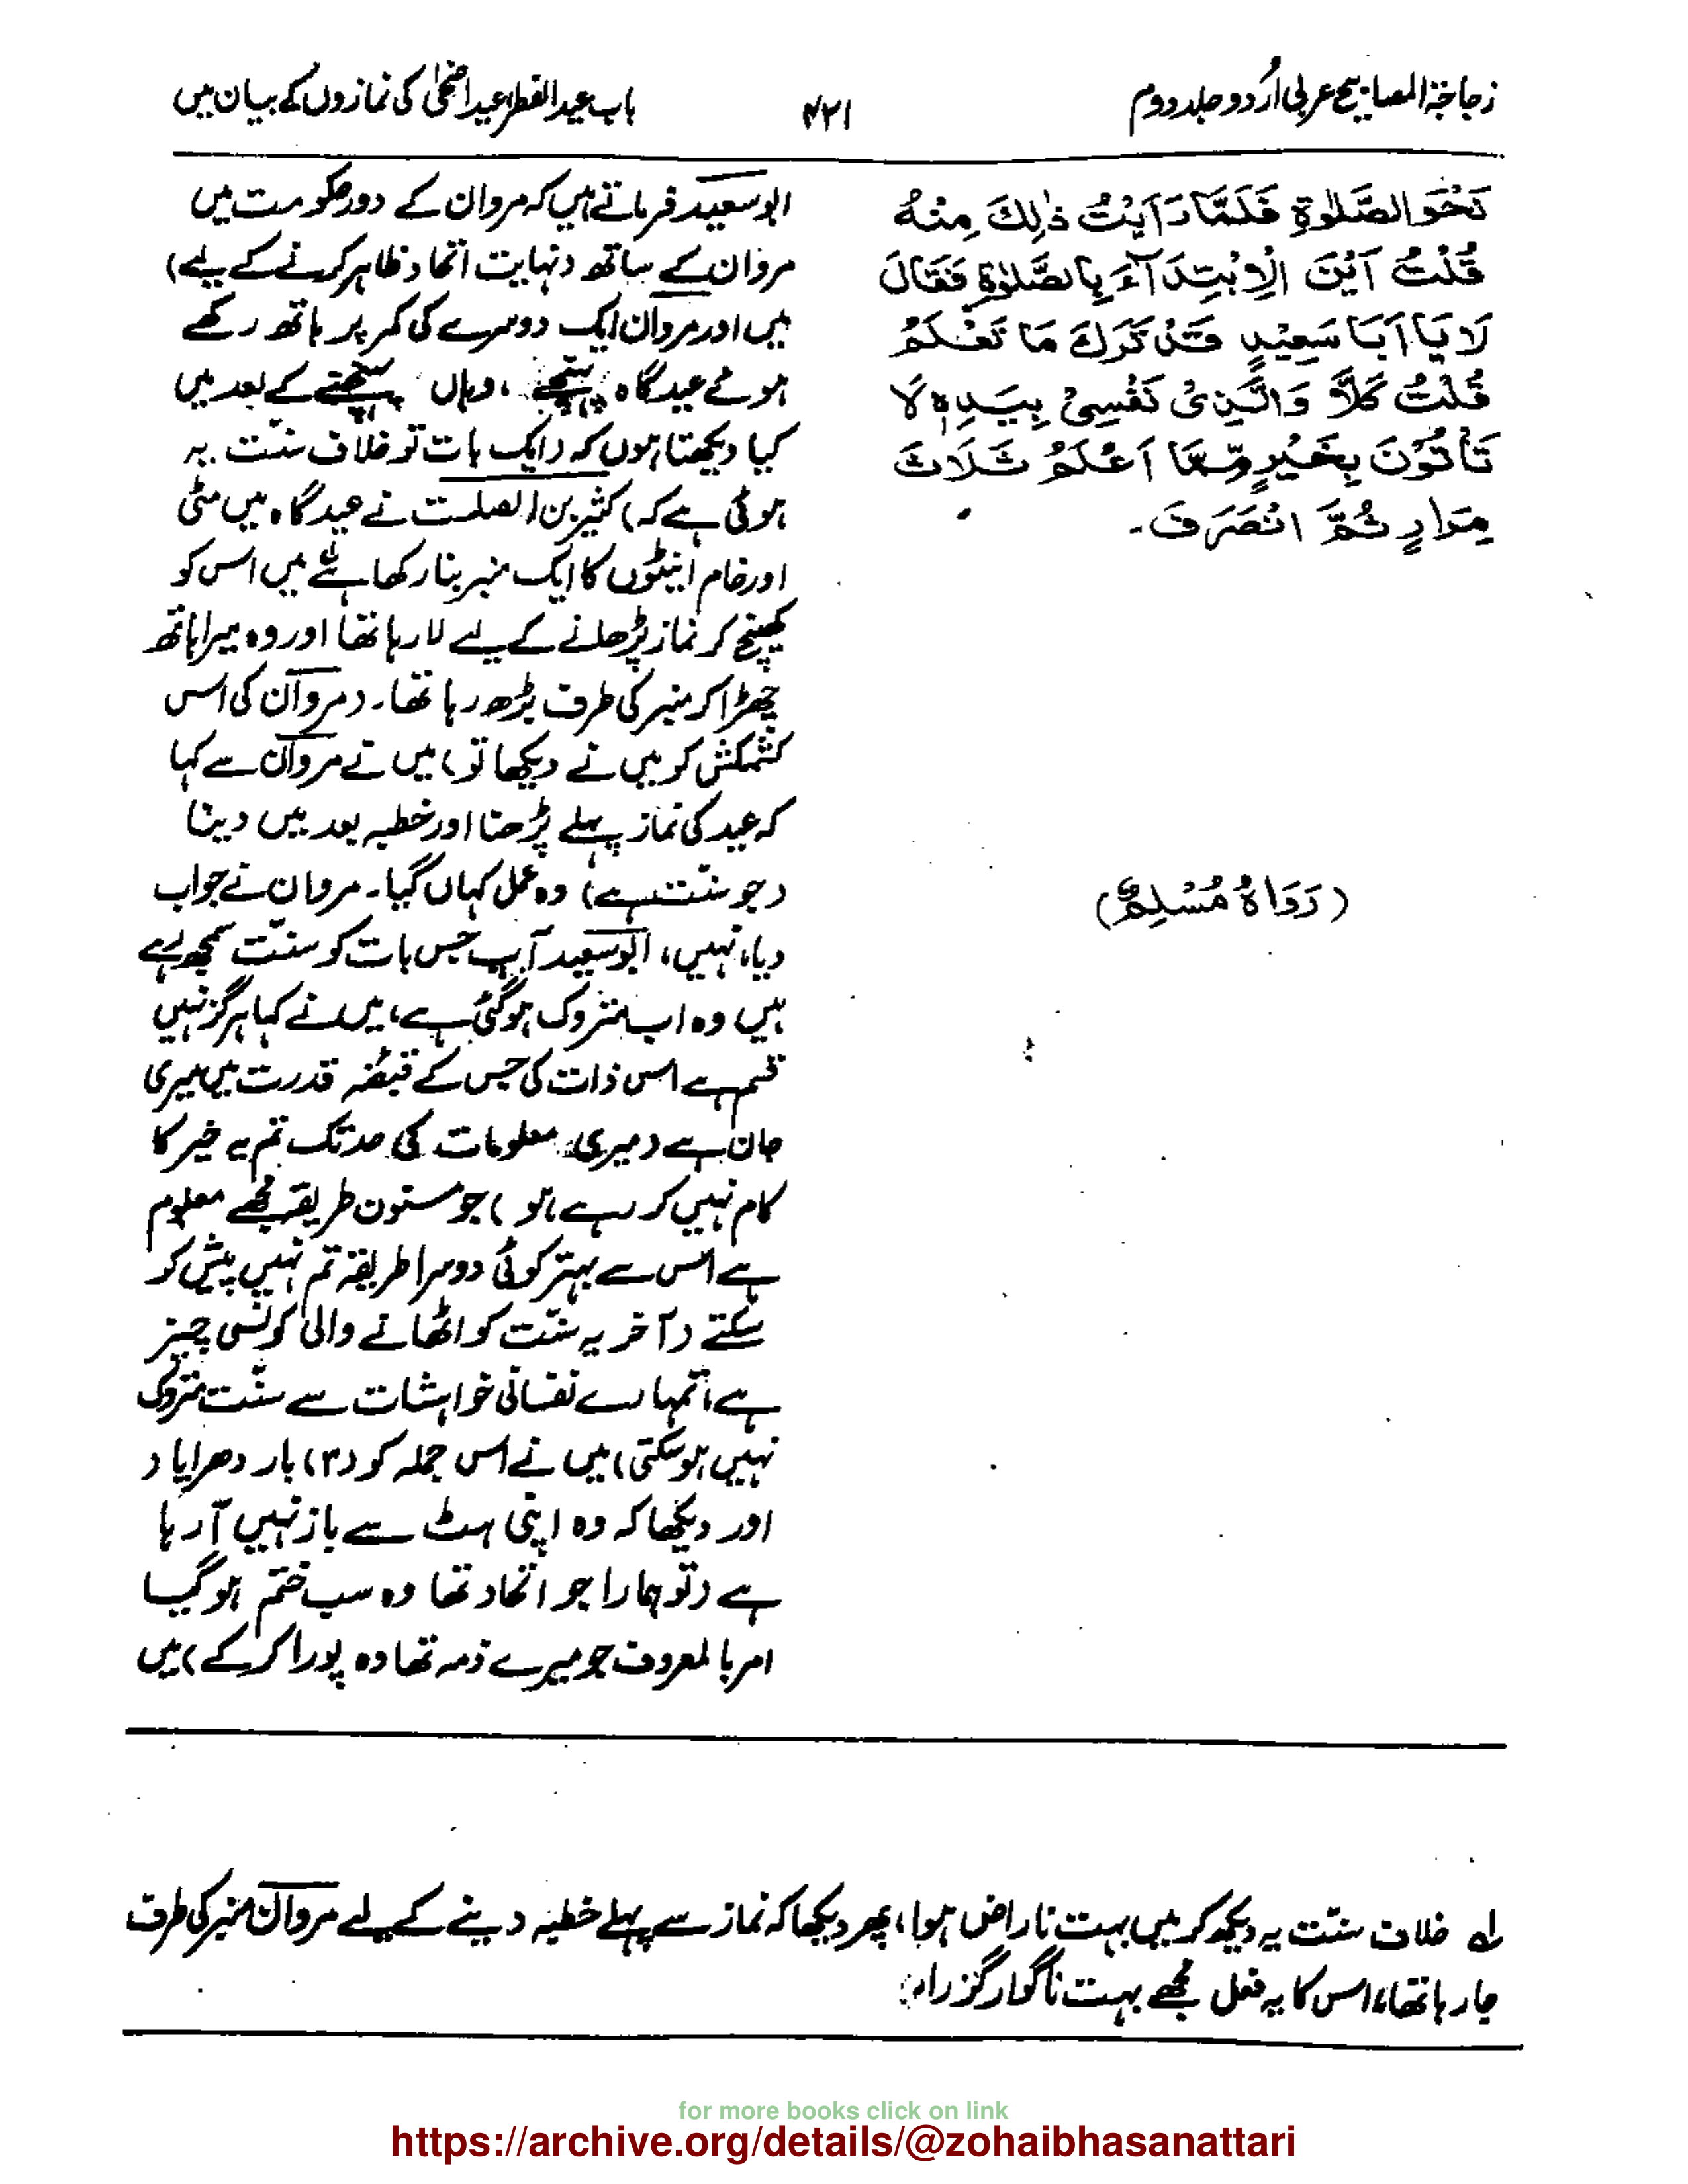 زجاجۃ المصابیح عربی اُردو جلد دوم
۴۲۱
باب عید الفطر عید اضحیٰ کی نمازوں کے بیان میں
نَحْوَ الصَّلٰوةِ فَلَمَّا رَاَيْتُ ذٰلِكَ مِنْهُ
قُلْتُ اَيْنَ الْاِبْتِدَآءَ بِالصَّلٰوةِ فَقَالَ
لَا يَا اَبَا سَعِيْدٍ قَدْ تَرَكَ مَا تَعْلَمُ
قُلْتُ كَلَّا وَالَّذِىْ نَفْسِىْ بِيَدِهٖ لَا
تَأْتُوْنَ بِخَيْرٍ مِّمَّا اَعْلَمُ ثَلَاثَ
مِرَارٍ ثُمَّ انْصَرَفَ۔
(رَوَاهُ مُسْلِمٌ)
ابوسعید فرماتے ہیں کہ مروان کے دور حکومت میں
مروان کے ساتھ (نہایت اتحاد ظاہر کرنے کے لیے)
میں اور مروان ایک دوسرے کی کمر پر ہاتھ رکھے
ہوئے عید گاہ پہنچے، وہاں پہنچتے کے بعد میں
کیا دیکھتا ہوں کہ (ایک بات تو خلاف سنّت یہ
ہوئی ہے کہ) کثیر بن الصلت نے عید گاہ میں مٹی
اور خام اینٹوں کا ایک منبر بنا رکھا ہے لہ میں اس کو
کھینچ کر نماز پڑھانے کے لیے لا رہا تھا اور وہ میرا ہاتھ
چھڑا کر منبر کی طرف بڑھ رہا تھا۔ (مروان کی اس
کشمکش کو میں نے دیکھا تو) میں نے مروان سے کہا
کہ عید کی نماز پہلے پڑھنا اور خطبہ بعد میں دینا
(جو سنّت ہے) وہ عمل کہاں گیا۔ مروان نے جواب
دیا، نہیں، ابوسعید آپ جس بات کو سنّت سمجھ رہے
ہیں وہ اب متروک ہوگئی ہے، میں نے کہا ہرگز نہیں
قسم ہے اس ذات کی جس کے قبضہ قدرت میں میری
جان ہے (میری معلومات کی حد تک تم یہ خیر کا
کام نہیں کر رہے ہو) جو مسنون طریقہ مجھے معلوم
ہے اس سے بہتر کوئی دوسرا طریقہ تم نہیں پیش کر
سکتے (آخر یہ سنّت کو اٹھانے والی کونسی چیز
ہے، تمہارے نفسانی خواہشات سے سنّت متروک
نہیں ہوسکتی) میں نے اس جملہ کو (۳) بار دھرایا (
اور دیکھا کہ وہ اپنی ہٹ سے باز نہیں آ رہا
ہے (تو ہمارا جو اتحاد تھا وہ سب ختم ہوگیا
امر بالمعروف جو میرے ذمہ تھا وہ پورا کر کے) میں
لہ خلاف سنّت یہ دیکھ کر میں بہت ناراض ہوا، پھر دیکھا کہ نماز سے پہلے خطبہ دینے کے لیے مروان منبر کی طرف
جا رہا تھا، اس کا یہ فعل مجھے بہت ناگوار گزرا،
for more books click on link
https://archive.org/details/@zohaibhasanattari